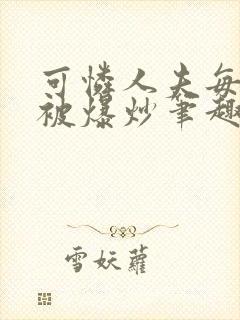 可憐人夫每
被爆炒筆趣
雪妖蘿